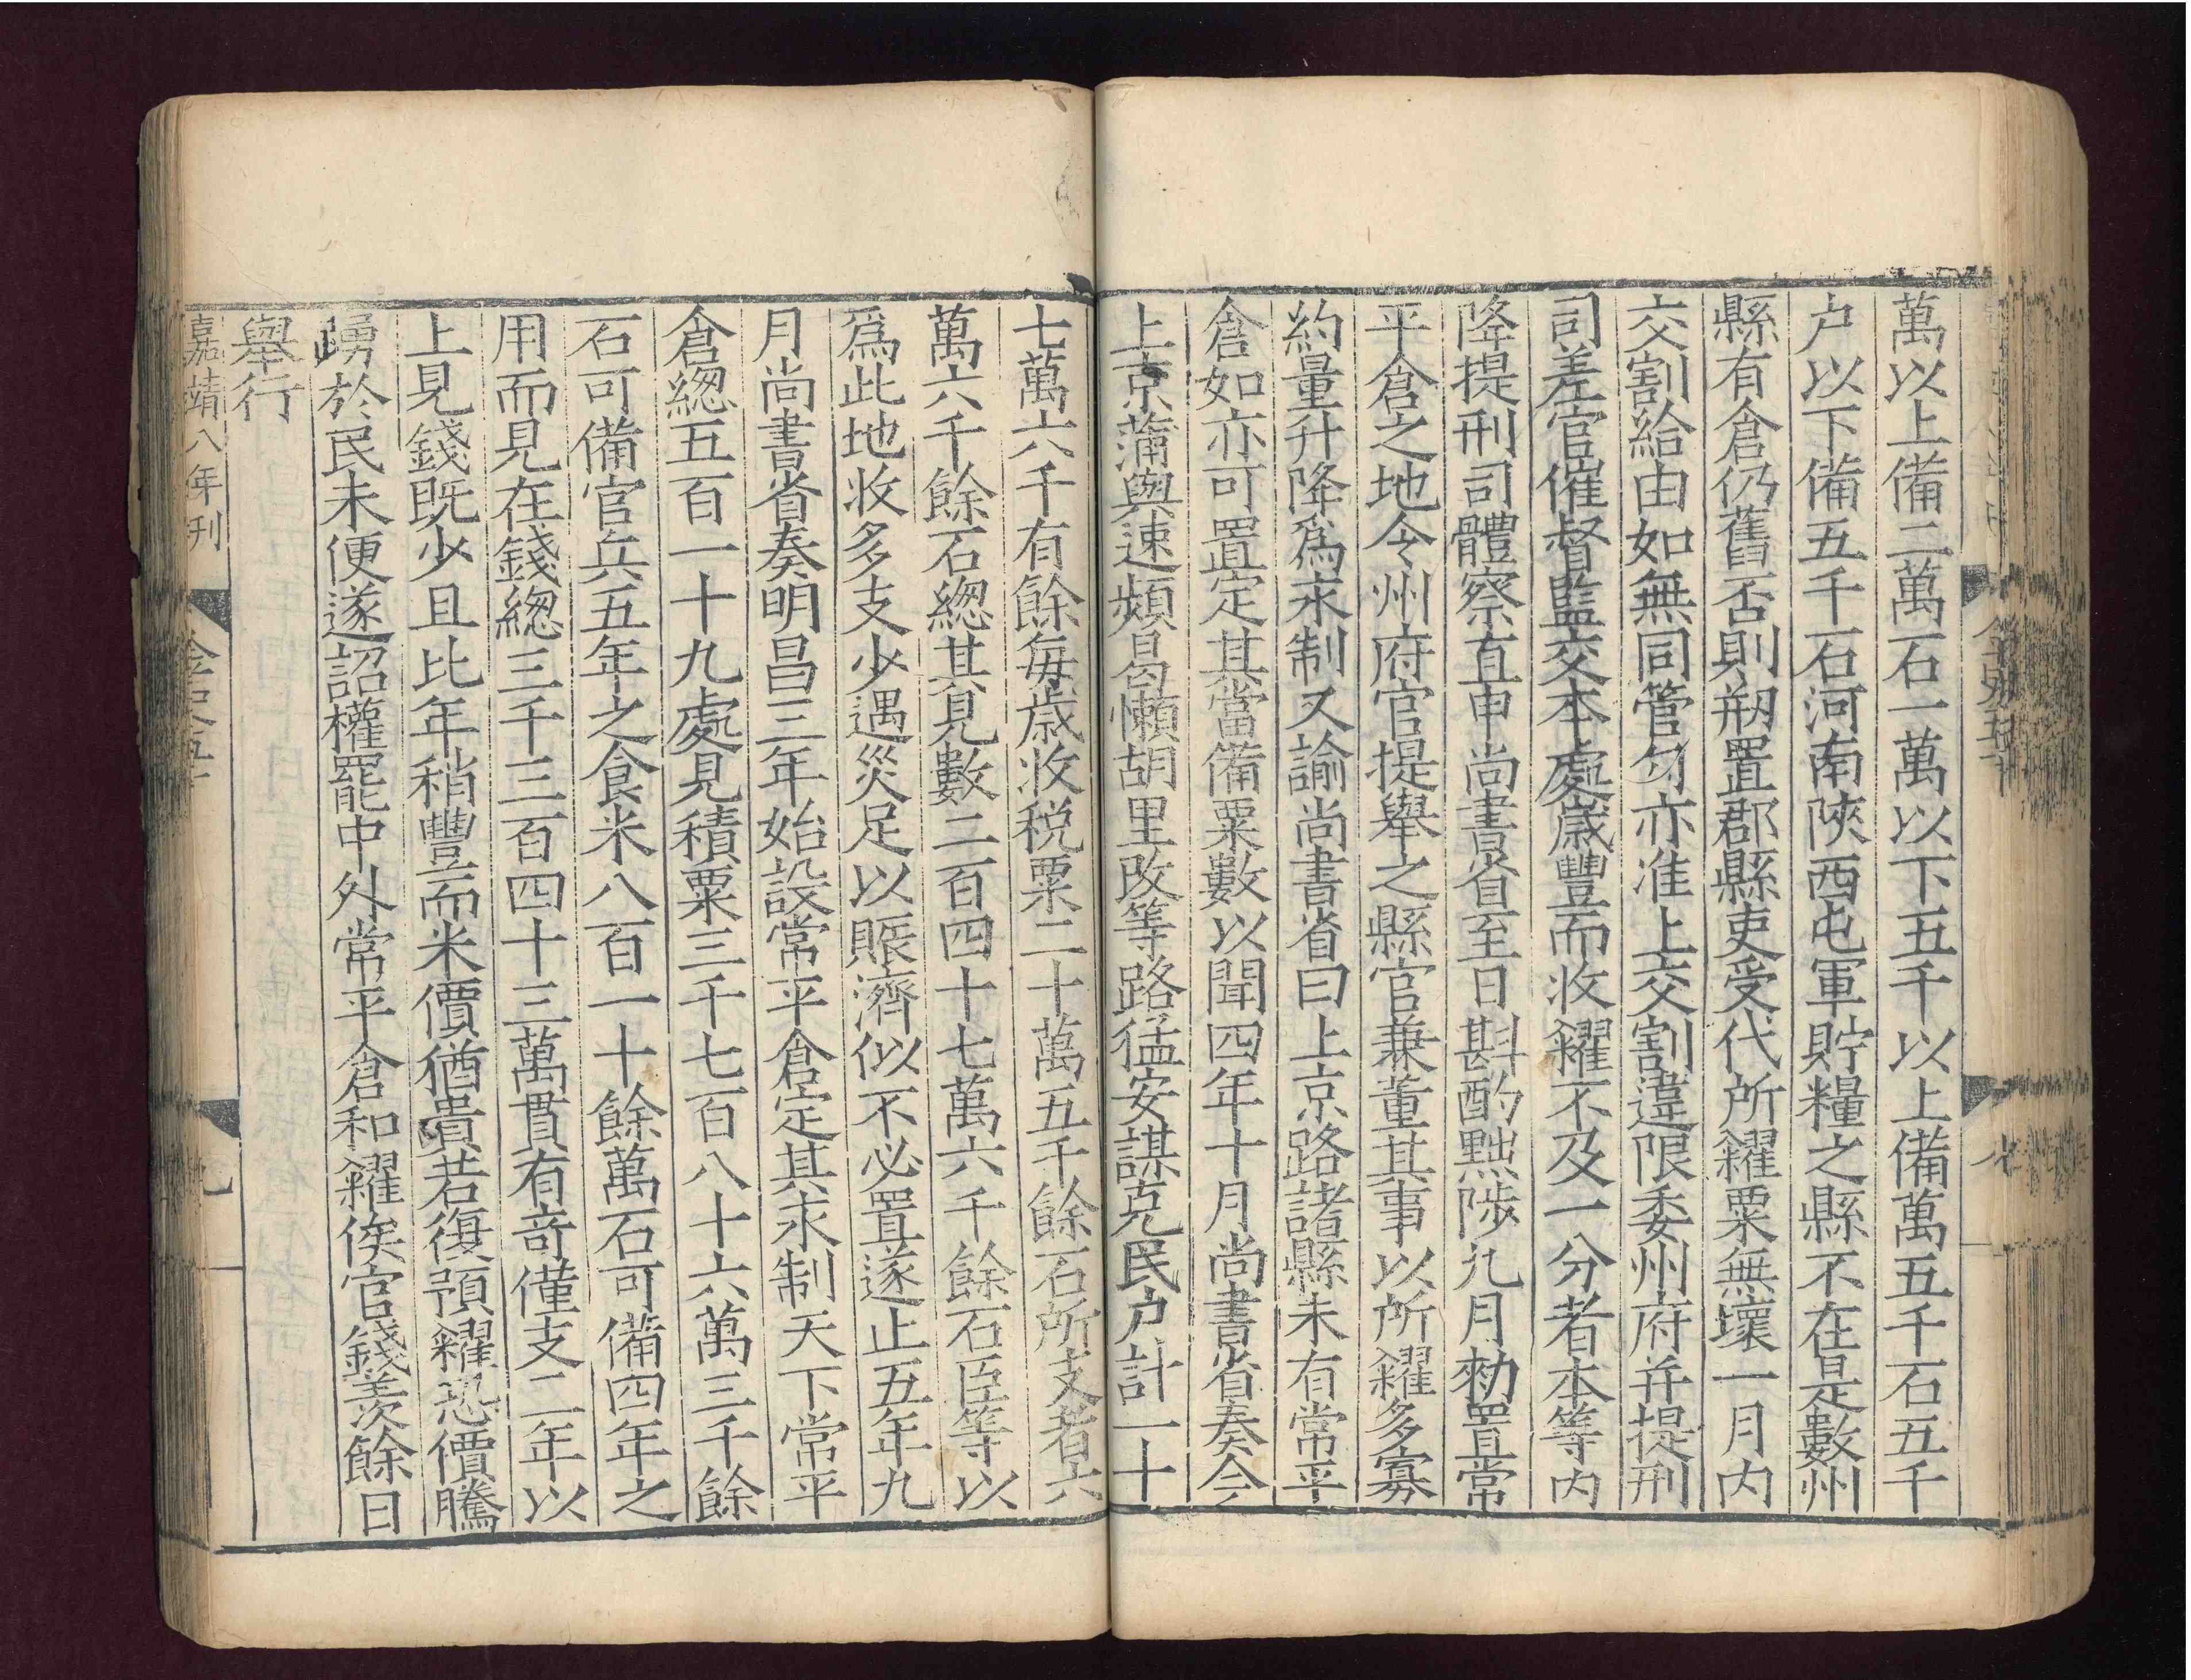 萬以上備二萬石一萬以下五千以上備萬五千石五千
户以下備五千石河南陝西屯軍貯糧之縣不在是數州
縣有倉仍舊否則剏置郡縣吏受代所糴粟無壞一月内
交割給由如無同管勾亦准上交割違限委州府并提刑
司差官催督監交本處歲豐而收糴不及一分者本等内
降提刑司體察直申尚書省至日斟酌黜陟九月勑置常
平倉之地令州府官提舉之縣官兼董其事以所糴多寡
約量升降爲永制又諭尚書省曰上京路諸縣未有常平
倉如亦可置定其當備粟數以聞四年十月尚書省奏今
上京蒲與速頻曷懶胡里改等路猛安謀克民户計一十
七萬六千有餘每歲收税粟二十萬五千餘石所支者六
萬六千餘石緫其見數二百四十七萬六千餘石臣等以
爲此地收多支少遇災足以賑濟似不必置遂止五年九
月尚書省奏明昌三年始設常平倉定其永制天下常平
倉緫五百一十九處見積粟三千七百八十六萬三千餘
石可備官兵五年之食米八百一十餘萬石可備四年之
用而見在錢緫三千三百四十三萬貫有奇僅支二年以
上見錢既少且比年稍豐而米價猶貴若復預糴恐價騰
踴於民未便遂詔權罷中外常平倉和糴俟官錢羨餘日
舉行
嘉靖八年刊
金史五十
九